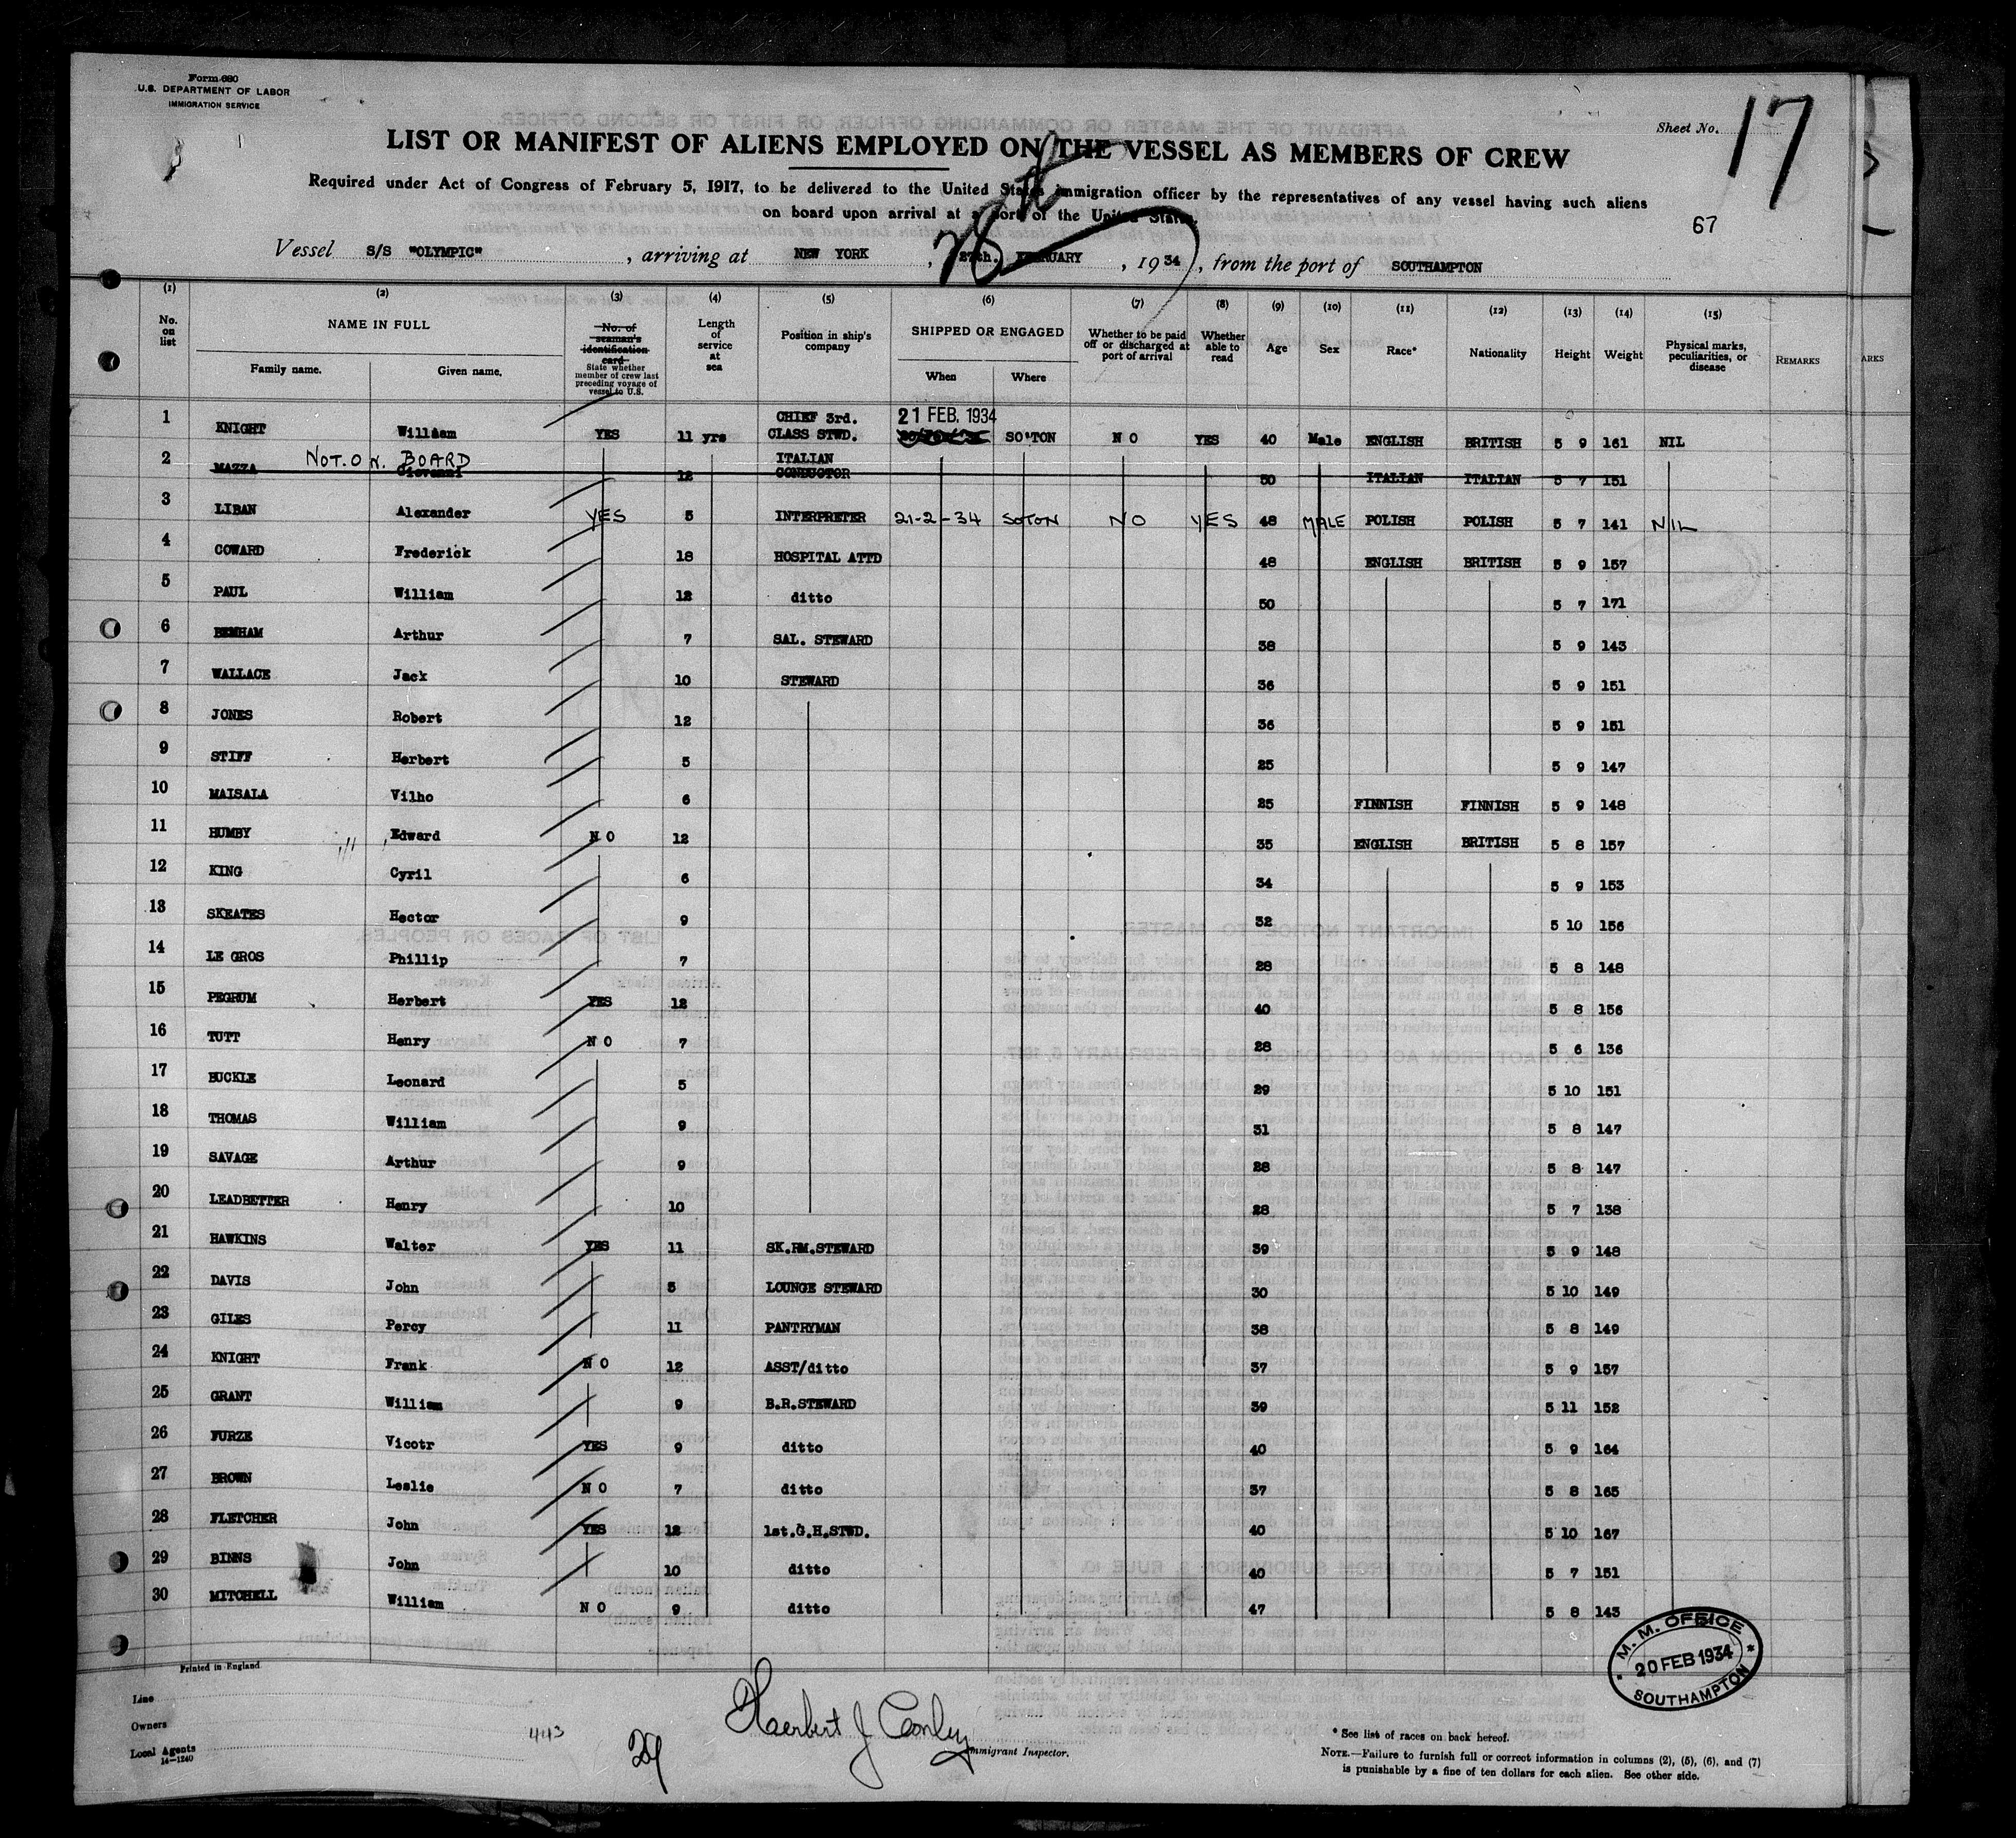 Form 680
U.S. DEPARTMENT OF LABOR
IMMIGRATION SERVICE
Sheet No. 17
LIST OR MANIFEST OF ALIENS EMPLOYED ON THE VESSEL AS MEMBERS OF CREW
Required under Act of Congress of February 5, 1917, to be delivered to the United States immigration officer by the representatives of any vessel having such aliens
on board upon arrival at a port of the United States.
67
Vessel S/S "OLYMPIC" , arriving at NEW YORK , 27th. 28 FEBRUARY , 1934 , from the port of SOUTHAMPTON
(1) (2) (3) (4) (5) (6) (7) (8) (9) (10) (11) (12) (13) (14) (15)
No. on list NAME IN FULL Family name. Given name. No. of seaman's identification card State whether member of crew last preceding voyage of vessel to U.S. Length of service at sea Position in ship's company SHIPPED OR ENGAGED When Where Whether to be paid off or discharged at port of arrival Whether able to read Age Sex Race* Nationality Height Weight Physical marks, peculiarities, or disease REMARKS
ARKS
1 KNIGHT William YES 11 yrs CHIEF 3rd. CLASS STWD. 21 FEB. 1934 SO'TON NO YES 40 Male ENGLISH BRITISH 5 9 161 NIL
2 MAZZA Giovanni NOT. ON. BOARD 12 ITALIAN CONDUCTOR 50 ITALIAN ITALIAN 5 7 151
3 LIBAN Alexander YES 5 INTERPRETER 21-2-34 SOTON NO YES 48 MALE POLISH POLISH 5 7 141 NIL
4 COWARD Frederick 18 HOSPITAL ATTD 48 ENGLISH BRITISH 5 9 157
5 PAUL William 12 ditto 50 5 7 171
6 BEMHAM Arthur 7 SAL. STEWARD 38 5 9 143
7 WALLACE Jack 10 STEWARD 36 5 9 151
8 JONES Robert 12 36 5 9 151
9 STIFF Herbert 5 25 5 9 147
10 MAISALA Vilho 6 25 FINNISH FINNISH 5 9 148
11 HUMBY Edward NO 12 35 ENGLISH BRITISH 5 8 157
12 KING Cyril 6 34 5 9 153
13 SKEATES Hector 9 32 5 10 156
14 LE GROS Phillip 7 28 5 8 148
15 PEGRUM Herbert YES 12 40 5 8 156
16 TUTT Henry NO 7 28 5 6 136
17 BUCKLE Leonard 5 29 5 10 151
18 THOMAS William 9 31 5 8 147
19 SAVAGE Arthur 9 28 5 8 147
20 LEADBETTER Henry 10 28 5 7 138
21 HAWKINS Walter YES 11 SK.RM.STEWARD 39 5 9 148
22 DAVIS John 5 LOUNGE STEWARD 30 5 10 149
23 GILES Percy 11 PANTRYMAN 38 5 8 149
24 KNIGHT Frank NO 12 ASST/ditto 37 5 9 157
25 GRANT William 9 B.R.STEWARD 39 5 11 152
26 FURZE Vicotr YES 9 ditto 40 5 9 164
27 BROWN Leslie NO 7 ditto 37 5 8 165
28 FLETCHER John YES 12 1st.G.H.STWD. 40 5 10 167
29 BINNS John 10 ditto 40 5 7 151
30 MITCHELL William NO 9 ditto 47 5 8 143
M. M. OFFICE
20 FEB 1934
SOUTHAMPTON
Printed in England
Line
Owners
Local Agents
14-1240
443
29
Immigrant Inspector.
* See list of races on back hereof.
NOTE.—Failure to furnish full or correct information in columns (2), (5), (6), and (7)
is punishable by a fine of ten dollars for each alien. See other side.